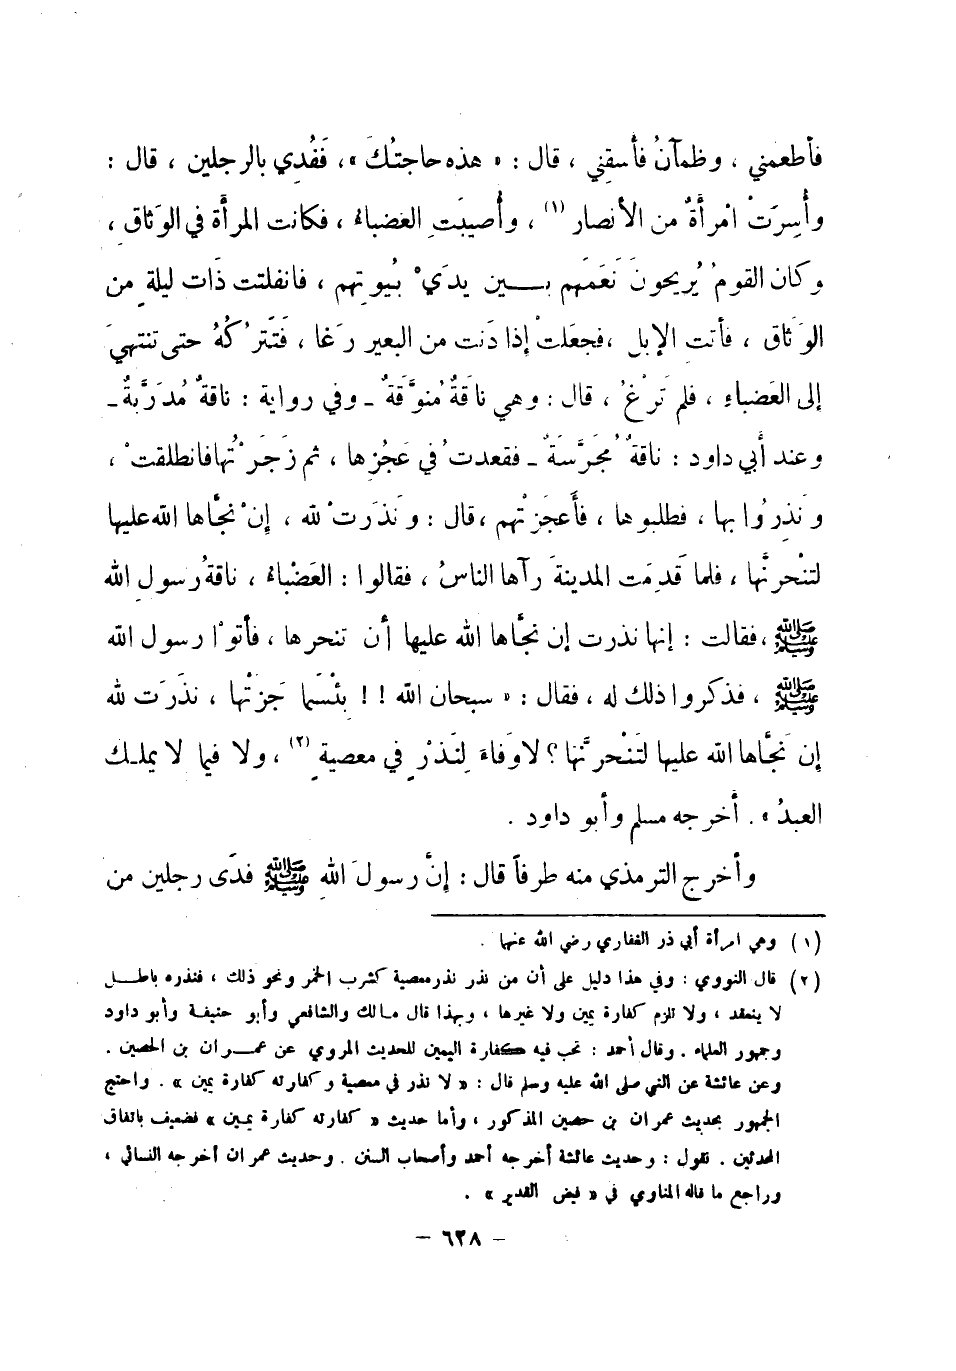 فأطعمني ، وظمآنُ فأسقِني ، قال : « هذه حاجتُكَ » ، فَفُدِي بالرجلين ، قال :
وأُسِرَتْ امْرأةٌ من الأنصار (١) ، وأُصيبَتِ العَضباءُ ، فكانت المرأة في الوَثاقِ ،
وكان القومُ يُريحونَ نَعَمَهم بــين يدَيْ بُيوتهم ، فانفلتت ذَات ليلةٍ من
الوَثاق ، فأتت الإبل ، فجعَلتْ إذا دَنت من البعير رَغا ، فَتَتركُهُ حتى تنتهيَ
إلى العَضباءِ ، فلم تَرْغُ ، قال : وهي ناقةٌ مُنوَّقةٌ ـ وفي رواية : ناقةٌ مُدَرَّبةٌ ـ
وعند أبي داود : ناقةٌ مُجَرَّسَةٌ ـ فقعدتْ في عَجُزِها ، ثم زَجَرَتْها فانطلقتْ ،
ونَذِرُوا بها ، فطلبوها ، فأَعجَزتْهم ، قال : ونَذَرَتْ لله ، إنْ نجَّاها الله عليها
لتنْحرنَّها ، فلما قَدِمَت المدينةَ رآها الناسُ ، فقالوا : العَضْباءُ ، ناقةُ رسولِ الله
ﷺ ، فقالت : إنها نذرت إن نجَّاها الله عليها أن تنحرها ، فأتوْا رسول الله
ﷺ ، فذكروا ذلك له ، فقال : « سبحان الله !! بِئْسَما جَزتْها ، نذَرَت لله
إن نَجَّاها الله عليها لتَنْحرنَّها ؟ لا وَفاءَ لِنَذْرٍ في معصيةٍ (٢) ، ولا فيما لا يملـك
العبدُ » . أخرجه مسلم وأبو داود .
وأخرج الترمذي منه طرفاً قال : إنَّ رسولَ اللهِ ﷺ فدَى رجلين من
(١) وهي امرأة أبي ذر الغفاري رضي الله عنها .
(٢) قال النووي : وفي هذا دليل على أن من نذر نذر معصية كشرب الخمر ونحو ذلك ، فنذره باطـل
لا ينعقد ، ولا تلزم كفارة يمين ولا غيرها ، وبهذا قال مـالك والشافعي وأبو حنيفـة وأبو داود
وجمهور العلماء . وقال أحمد : تجب فيه كفارة اليمين للحديث المروي عن عمـران بن الحصين .
وعن عائشة عن النبي صلى الله عليه وسلم قال : « لا نذر في معصية وكفارته كفارة يمين » . واحتج
الجمهور بحديث عمران بن حصين المذكور ، وأما حديث « كفارته كفارة يمـين » فضعيف باتفاق
المحدثين . نقول : وحديث عائشة أخرجه أحمد وأصحاب السنن . وحديث عمران أخرجه النسائي ،
وراجع ما قاله المناوي في « فيض القدير » .
– ٦٢٨ –